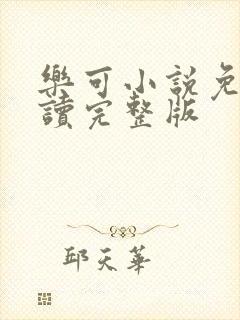 樂可小說免
讀完整版
邱天華